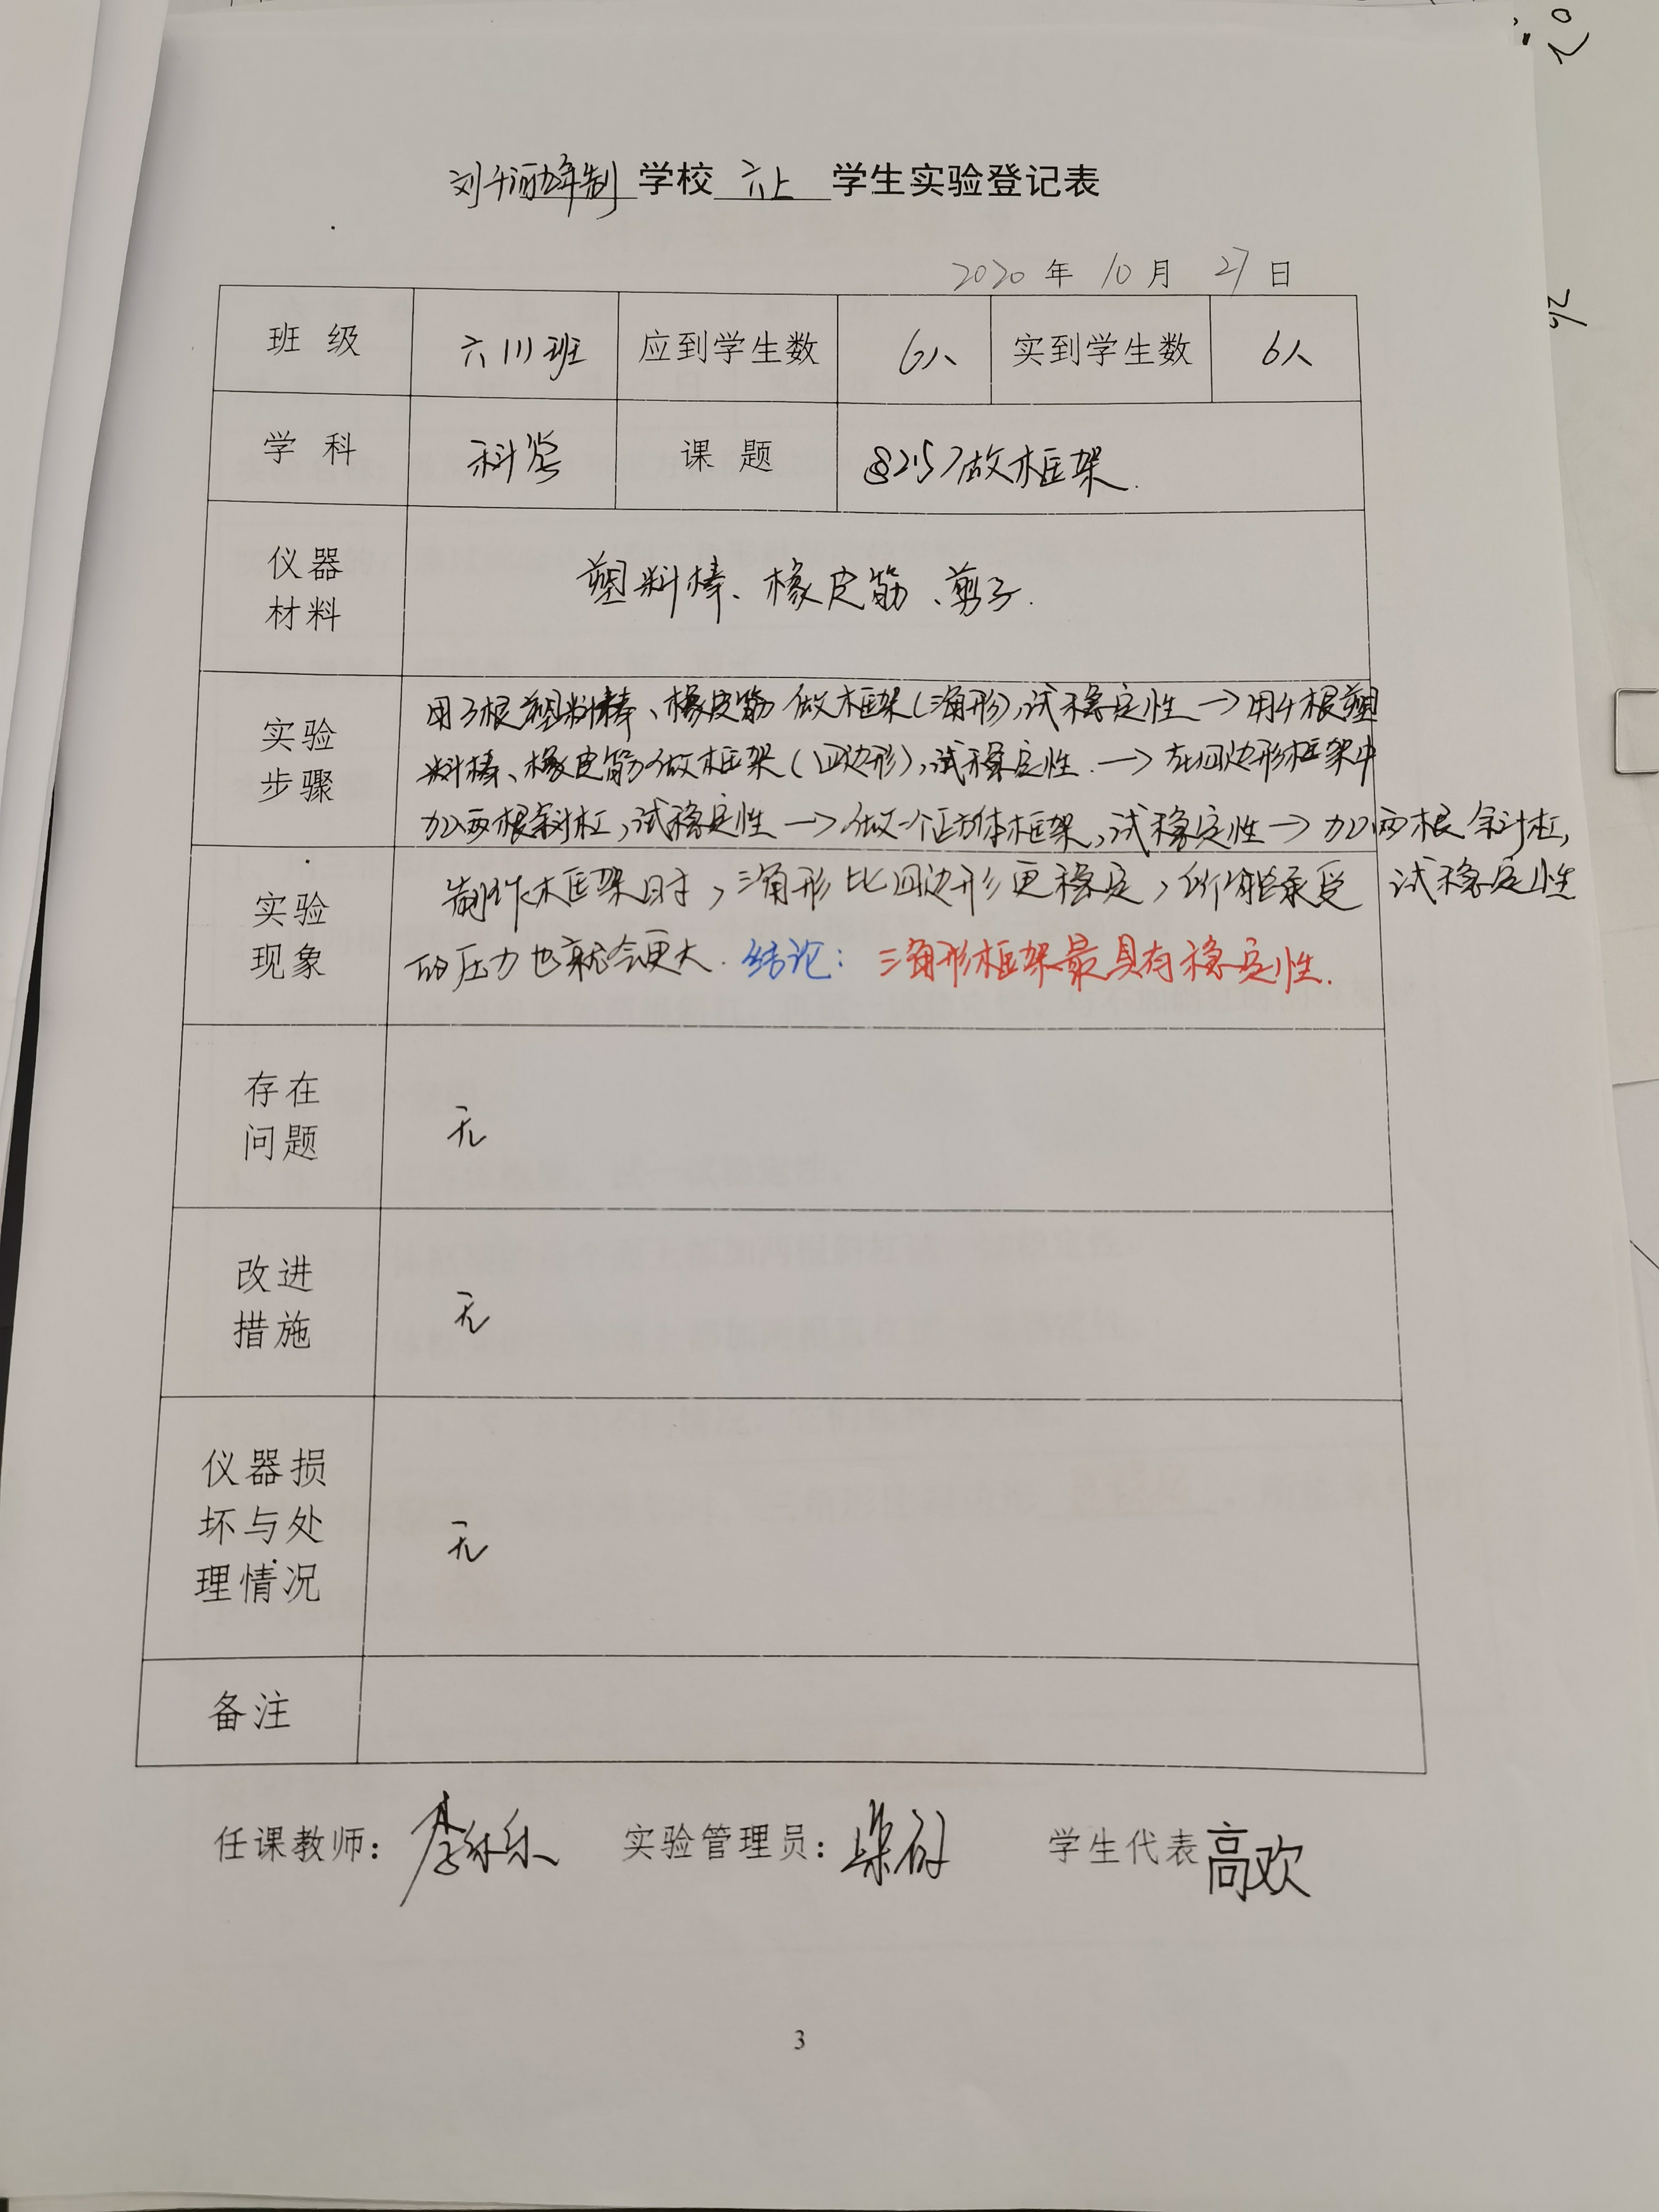 学校 六上 学生实验登记表
2020 年 10 月 27 日
班 级 六(1)班 应到学生数 6人 实到学生数 6人
学 科 科学 课 题 §2.5 做框架.
仪器
材料
塑料棒、橡皮筋、剪子.
实验
步骤
用3根塑料棒、橡皮筋做框架(三角形),试稳定性→用4根塑
料棒、橡皮筋做框架(四边形),试稳定性.→在四边形框架中
加两根斜杠,试稳定性→做一个正方体框架,试稳定性→加两根斜杠,
试稳定性
实验
现象
制作框架时,三角形比四边形更稳定,所能承受
的压力也就会更大. 结论: 三角形框架最具有稳定性.
存在
问题
无
改进
措施
无
仪器损
坏与处
理情况
无
备注
任课教师: 实验管理员: 学生代表 高欢
3